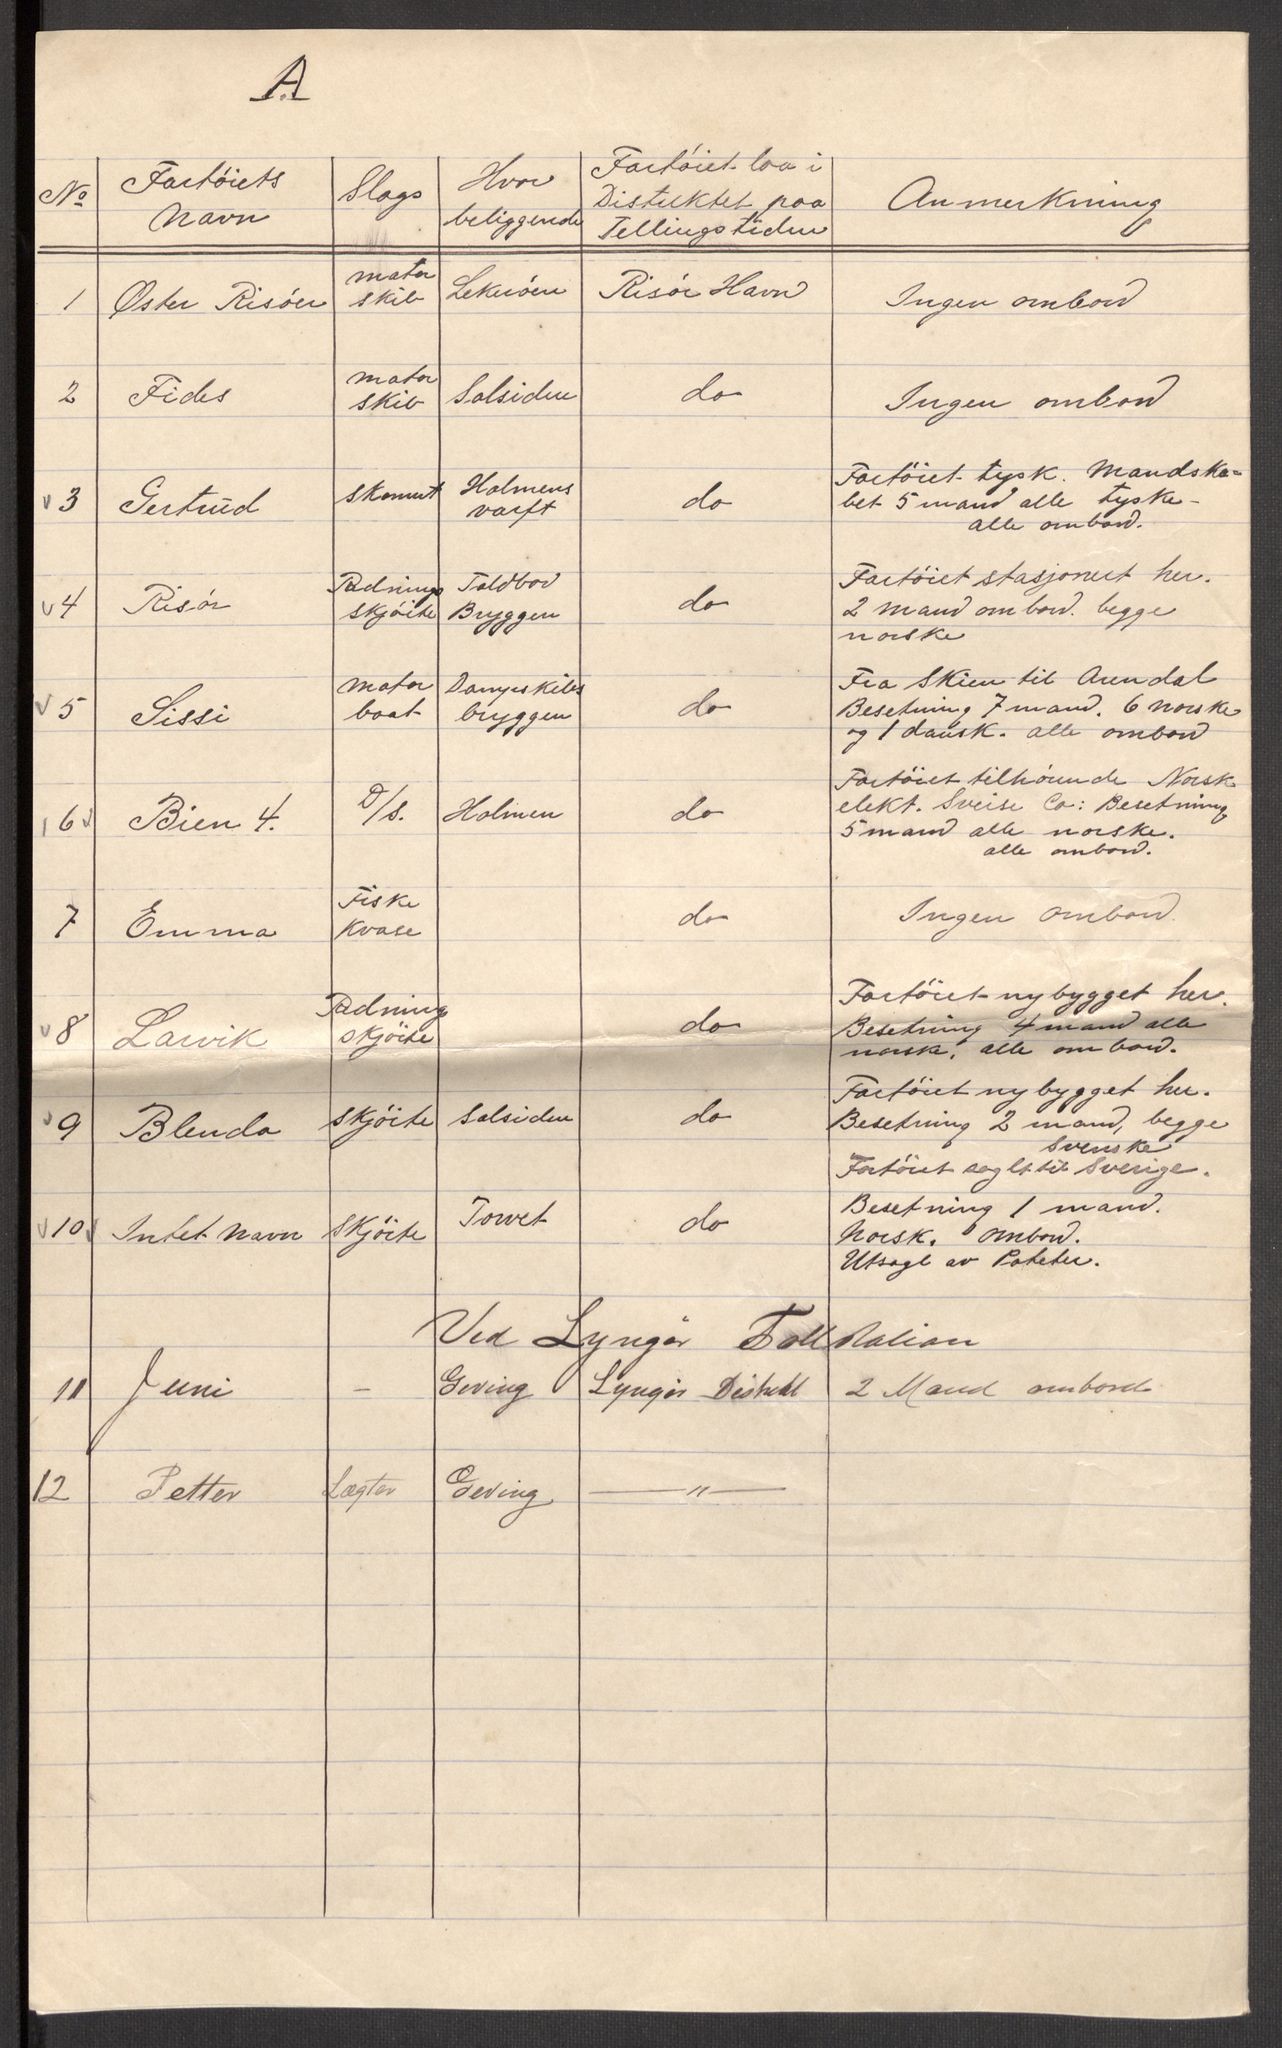 A
No
Fartöiets
Navn
Slags
Hvor
beliggende
Fartöiet laa i
Distriktet paa
Tellingstiden
Anmerkning
1 Øster Risöer motor skib Risör Havn Ingen ombord
2 Fides motor skib Solsiden do Ingen ombord
3 Gertrud skonnert Holmens varft do Fartöiet tysk. Mandska-
bet 5 mand alle tyske-
alle ombord.
4 Risör Rednings skjöite Toldbod Bryggen do Fartöiet stasjonert her.
2 mand ombord. begge
norske
5 Sissi motor baat Dampskibs bryggen do Fra Skien til Arendal
Besetning 7 mand. 6 norske
og 1 dansk. alle ombord
6 Bien 4. D/S. Holmen do Fartöiet tilhörende Norsk
elekt. Sveise Co: Besetning
5 mand alle norske.
alle ombord.
7 Emma Fiske Kvase do Ingen ombord.
8 Larvik Redning skjöite do Fartöiet nybygget her.
Besetning 4 mand alle
norske. alle ombord.
9 Blenda skjöite Solsiden do Fartöiet nybygget her.
Besetning 2 mand, begge
Svenske
Fartöiet solgt til Sverige.
10 Intet Navn skjöite Torvet do Besetning 1 mand.
Norsk. ombord.
Utsalg av Poteter.
Ved Lyngör Tollstation
11 Juni - Gjeving Lyngör Distrikt 2 Mand ombord
12 Petter Lægter Gjeving — " —